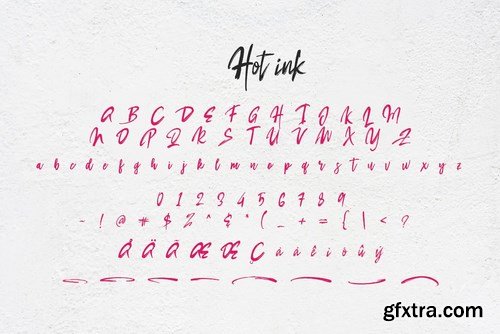 Hot ink
A B C D E F G H I J K L M
N O P Q R S T U V W X Y Z
a b c d e f g h i j k l m n o p q r s t u v w x y z
0 1 2 3 4 5 6 7 8 9
- ! @ # $ % ^ & * ( _ + = { | < ?
gfxtra.com